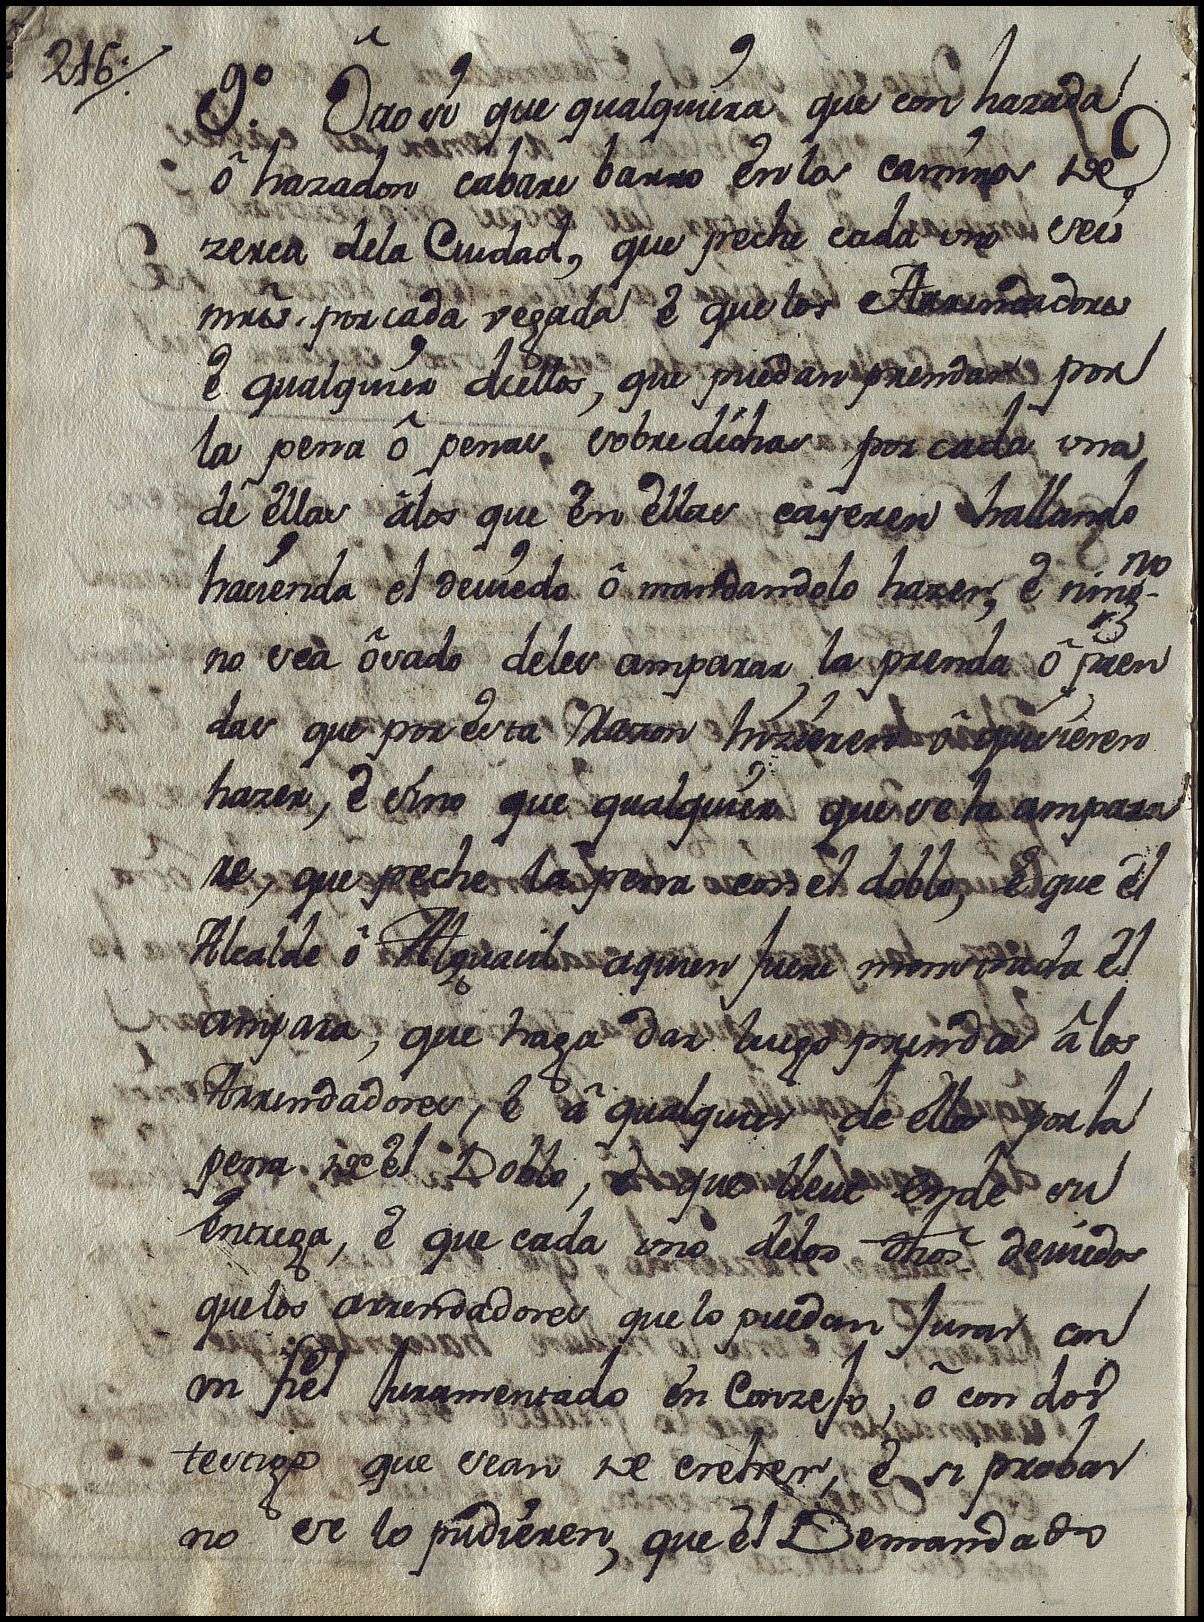 216.
9.º Otrosi que qualquiera que con hazada
ô hazadon cabare barro ên los caminos de
zerca dela Ciudad, que peche cada uno seis
mrs. por cada vegada ê que los Arrendadores
ê qualquier dellos, que puedan prendar por
la pena ô penas sobredichas por cada una
dê êllas âlos que ên êllas cayeren hallando
hacienda el deviedo ô mandandolo hazer, ê ning-
no
no sea ôsado deles amparar la prenda ô pren
das que por êsta Razon hizieren ô quisieren
hazer, ê sino que qualquier que se la ampara
re, que peche la pena con el doblo, ê que êl
Alcalde ô Alguacil aquien fuere êl
ampara, que haga dar luego prendas â los
Arrendadores, ê â qualquier de êllos por la
pena de êl Doblo, ê que lleve ende su
êntrega, ê que cada uno delos dhos deviedos
quelos arrendadores que lo puedan Jurar con
un fiêl Juramentado ên Conzejo, ô con dos
testigos que sean de creher, ê si probar
no se lo pudiêren, que êl Demandado